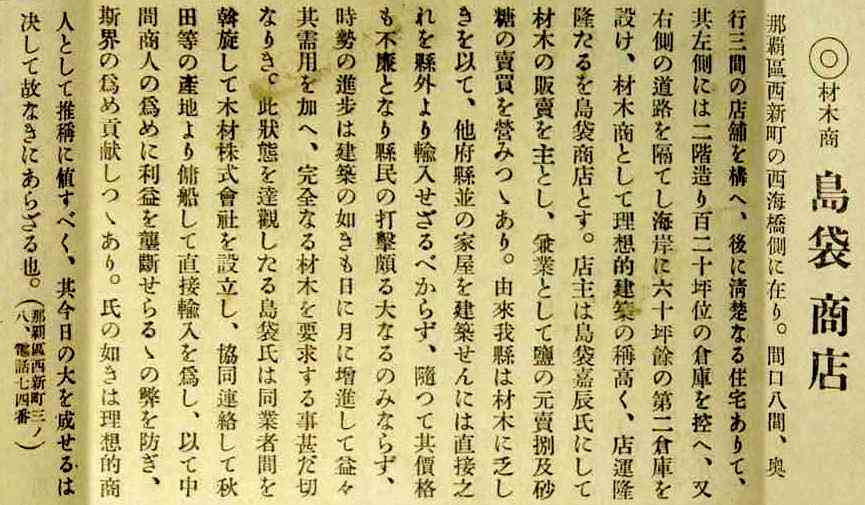 ◎材木商 島袋商店
那覇區西新町の西海橋側に在り。間口八間、奥
行三間の店舗を構へ、後に淸楚なる住宅ありて、
其左側には二階造り百二十坪位の倉庫を控へ、又
右側の道路を隔てし海岸に六十坪餘の第二倉庫を
設け、材木商として理想的建築の稱高く、店運隆
隆たるを島袋商店とす。店主は島袋嘉辰氏にして
材木の販賣を主とし、兼業として鹽の元賣捌及砂
糖の賣買を營みつゝあり。由來我縣は材木に乏し
きを以て、他府縣並の家屋を建築せんには直接之
れを縣外より輸入せざるべからず、隨つて其價格
も不廉となり縣民の打擊頗る大なるのみならず、
時勢の進步は建築の如きも日に月に增進して益々
其需用を加へ、完全なる材木を要求する事甚だ切
なりき。此狀態を達觀したる島袋氏は同業者間を
斡旋して木材株式會社を設立し、協同連絡して秋
田等の產地より傭船して直接輸入を爲し、以て中
間商人の爲めに利益を壟斷せらるゝの弊を防ぎ、
斯界の爲め貢献しつゝあり。氏の如きは理想的商
人として推稱に値すべく、其今日の大を成せるは
決して故なきにあらざる也。(那覇區西新町三ノ
八、電話七四番)